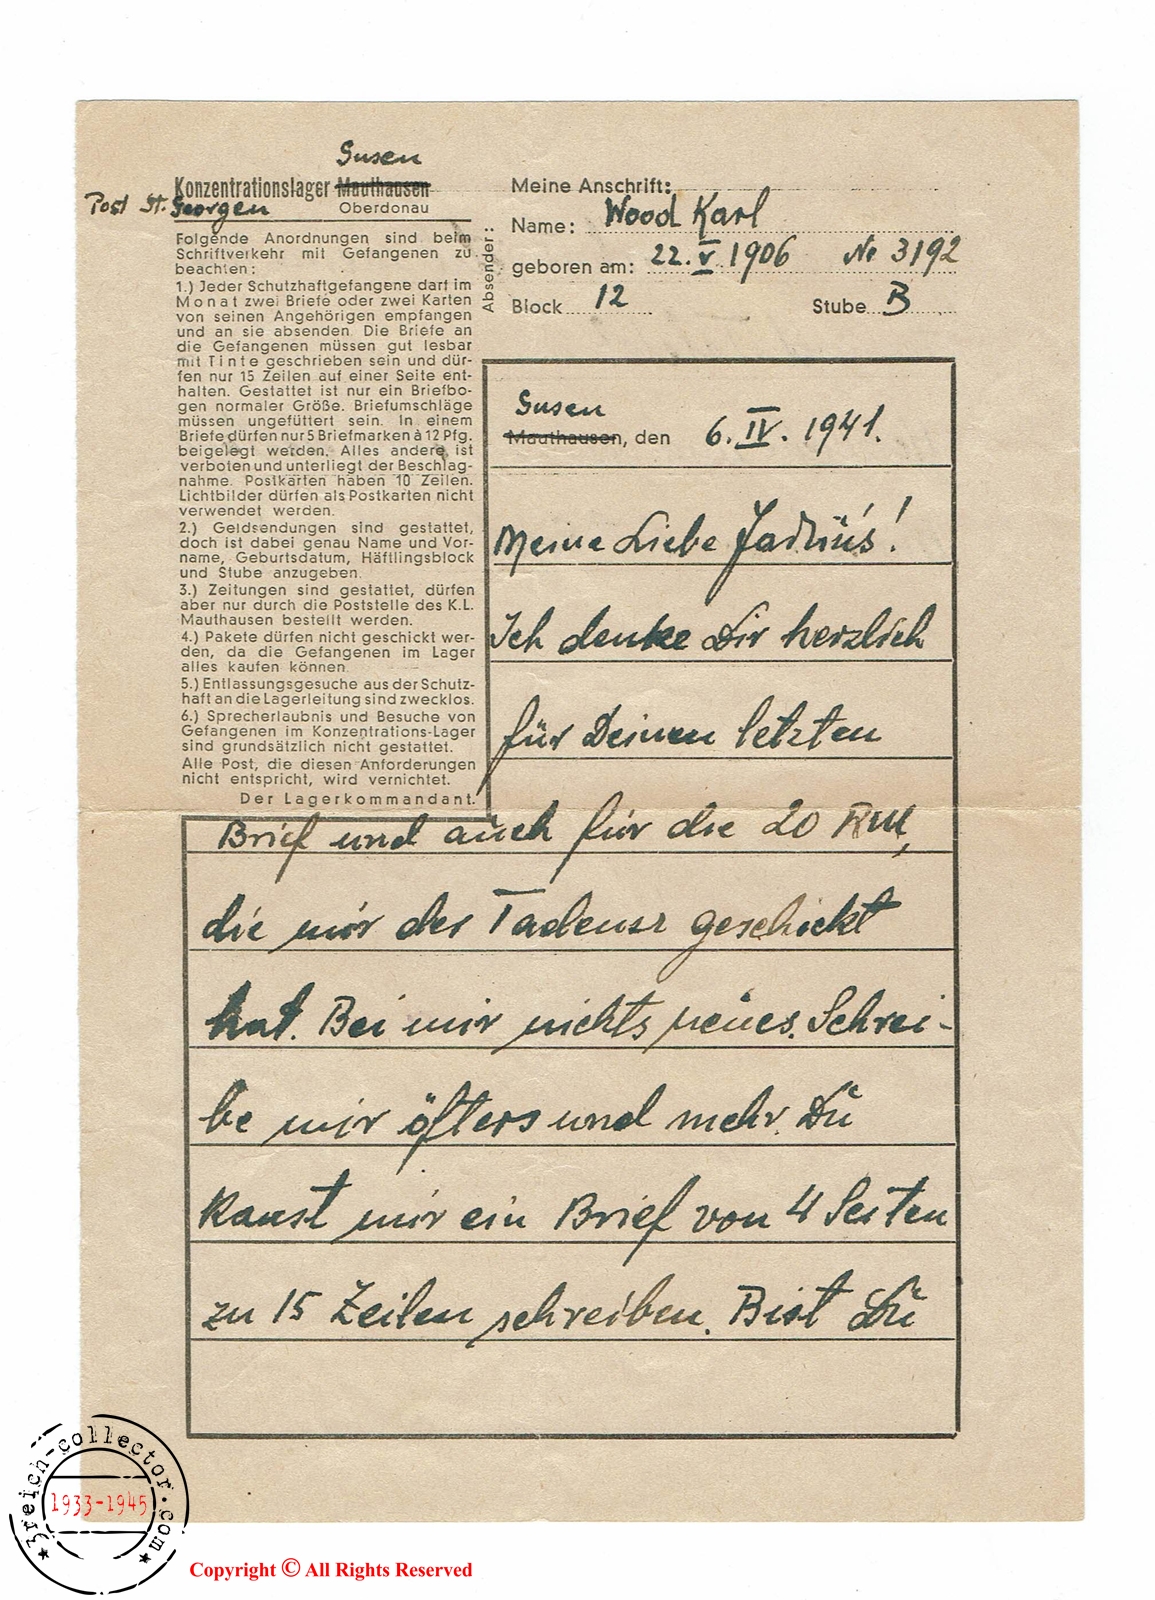 Gusen
Konzentrationslager Mauthausen
Post St. Georgen
Oberdonau
Folgende Anordnungen sind beim
Schriftverkehr mit Gefangenen zu
beachten:
1.) Jeder Schutzhaftgefangene darf im
Monat zwei Briefe oder zwei Karten
von seinen Angehörigen empfangen
und an sie absenden. Die Briefe an
die Gefangenen müssen gut lesbar
mit Tinte geschrieben sein und dür-
fen nur 15 Zeilen auf einer Seite ent-
halten. Gestattet ist nur ein Briefbo-
gen normaler Größe. Briefumschläge
müssen ungefüttert sein. In einem
Briefe dürfen nur 5 Briefmarken à 12 Pfg.
beigelegt werden. Alles andere ist
verboten und unterliegt der Beschlag-
nahme. Postkarten haben 10 Zeilen.
Lichtbilder dürfen als Postkarten nicht
verwendet werden.
2.) Geldsendungen sind gestattet,
doch ist dabei genau Name und Vor-
name, Geburtsdatum, Häftlingsblock
und Stube anzugeben.
3.) Zeitungen sind gestattet, dürfen
aber nur durch die Poststelle des K.L.
Mauthausen bestellt werden.
4.) Pakete dürfen nicht geschickt wer-
den, da die Gefangenen im Lager
alles kaufen können.
5.) Entlassungsgesuche aus der Schutz-
haft an die Lagerleitung sind zwecklos.
6.) Sprecherlaubnis und Besuche von
Gefangenen im Konzentrations-Lager
sind grundsätzlich nicht gestattet.
Alle Post, die diesen Anforderungen
nicht entspricht, wird vernichtet.
Der Lagerkommandant.
Absender:
Meine Anschrift:
Name: Wood Karl
geboren am: 22. V 1906 Nr 3192
Block 12 Stube B
Gusen
Mauthausen, den 6. IV. 1941.
Meine Liebe
Ich denke Dir herzlich
für Deinen letzten
Brief und auch für die 20 RM,
die mir der Tadeusz geschickt
hat. Bei mir nichts neues. Schrei-
be mir öfters und mehr. Du
kanst mir ein Brief von 4 Seiten
zu 15 Zeilen schreiben. Bist Du
3reich-collector.com
1933-1945
Copyright © All Rights Reserved